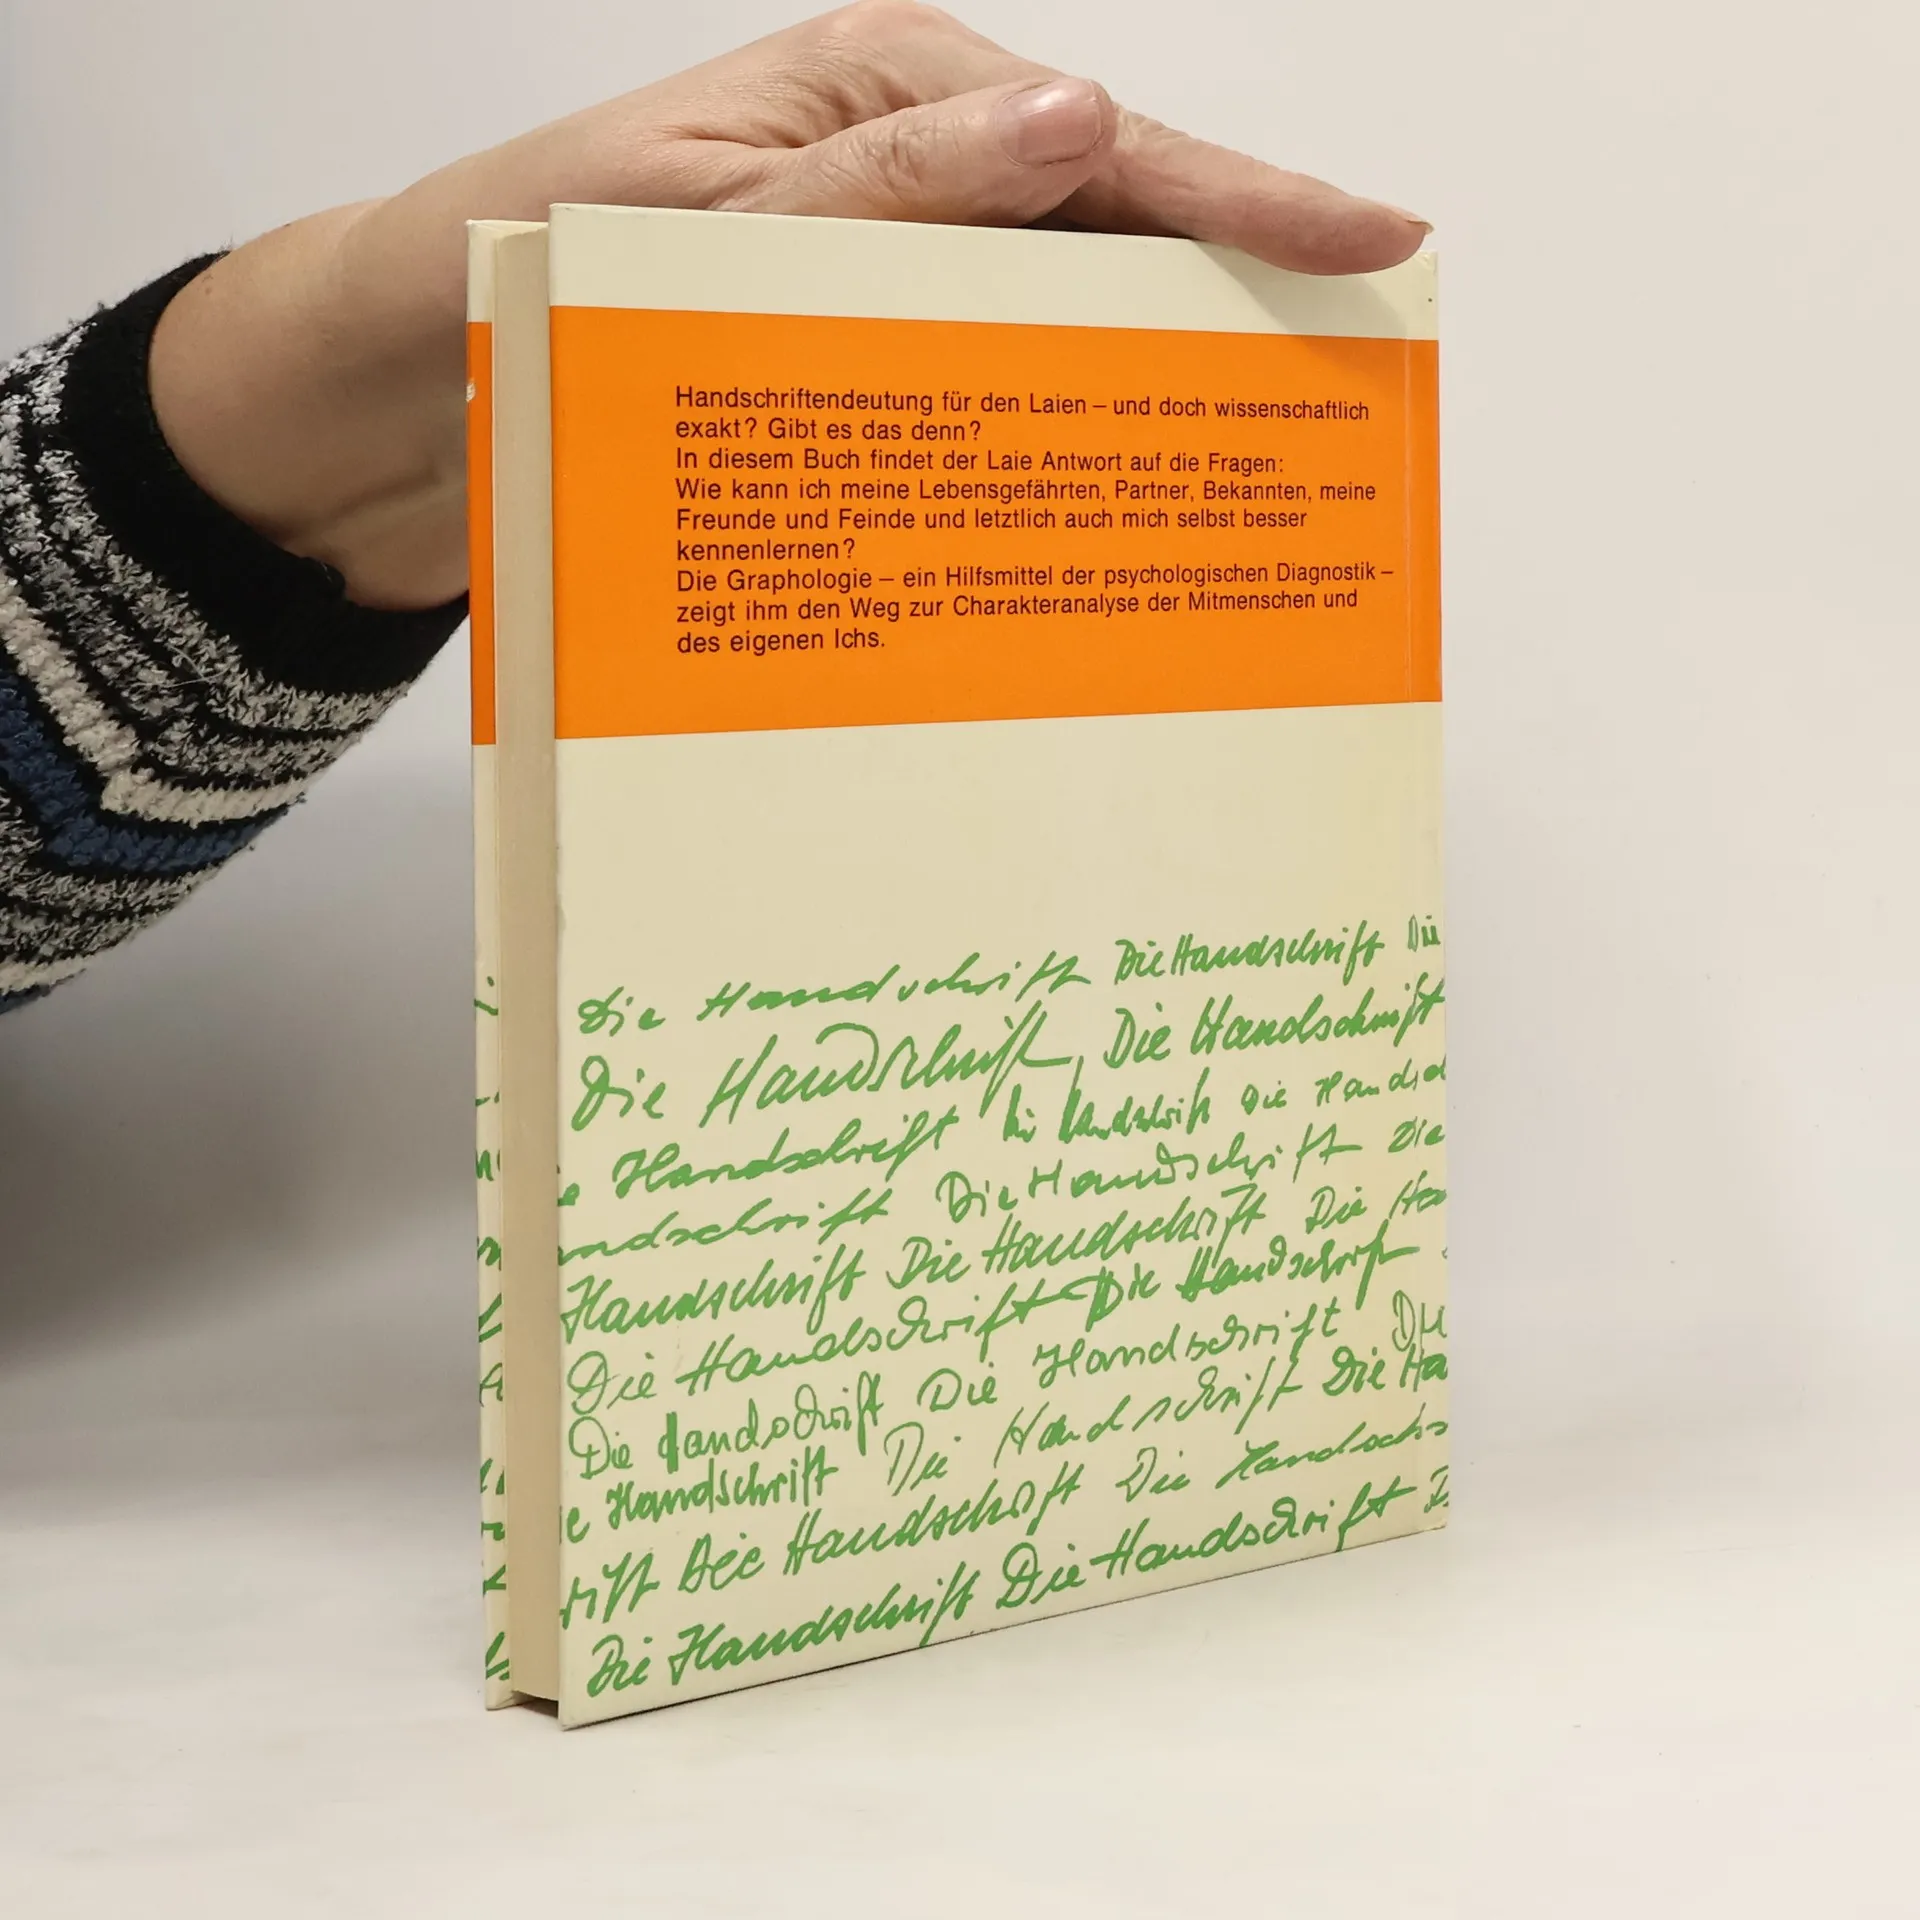 Handschriftendeutung für den Laien – und doch wissenschaftlich
exakt? Gibt es das denn?
In diesem Buch findet der Laie Antwort auf die Fragen:
Wie kann ich meine Lebensgefährten, Partner, Bekannten, meine
Freunde und Feinde und letztlich auch mich selbst besser
kennenlernen?
Die Graphologie – ein Hilfsmittel der psychologischen Diagnostik –
zeigt ihm den Weg zur Charakteranalyse der Mitmenschen und
des eigenen Ichs.
Die Handschrift Die Handschrift Die
Die Handschrift, Die Handschrift
Handschrift Die Handschrift Die Handsch
ndschrift Die Handschrift Die
Handschrift Die Handschrift Die Ha
Die Handschrift Die Handschrift
Die Handschrift Die Handschrift Die
e Handschrift Die Handschrift Die Ha
rift Die Handschrift Die Handsch
Die Handschrift Die Handschrift D